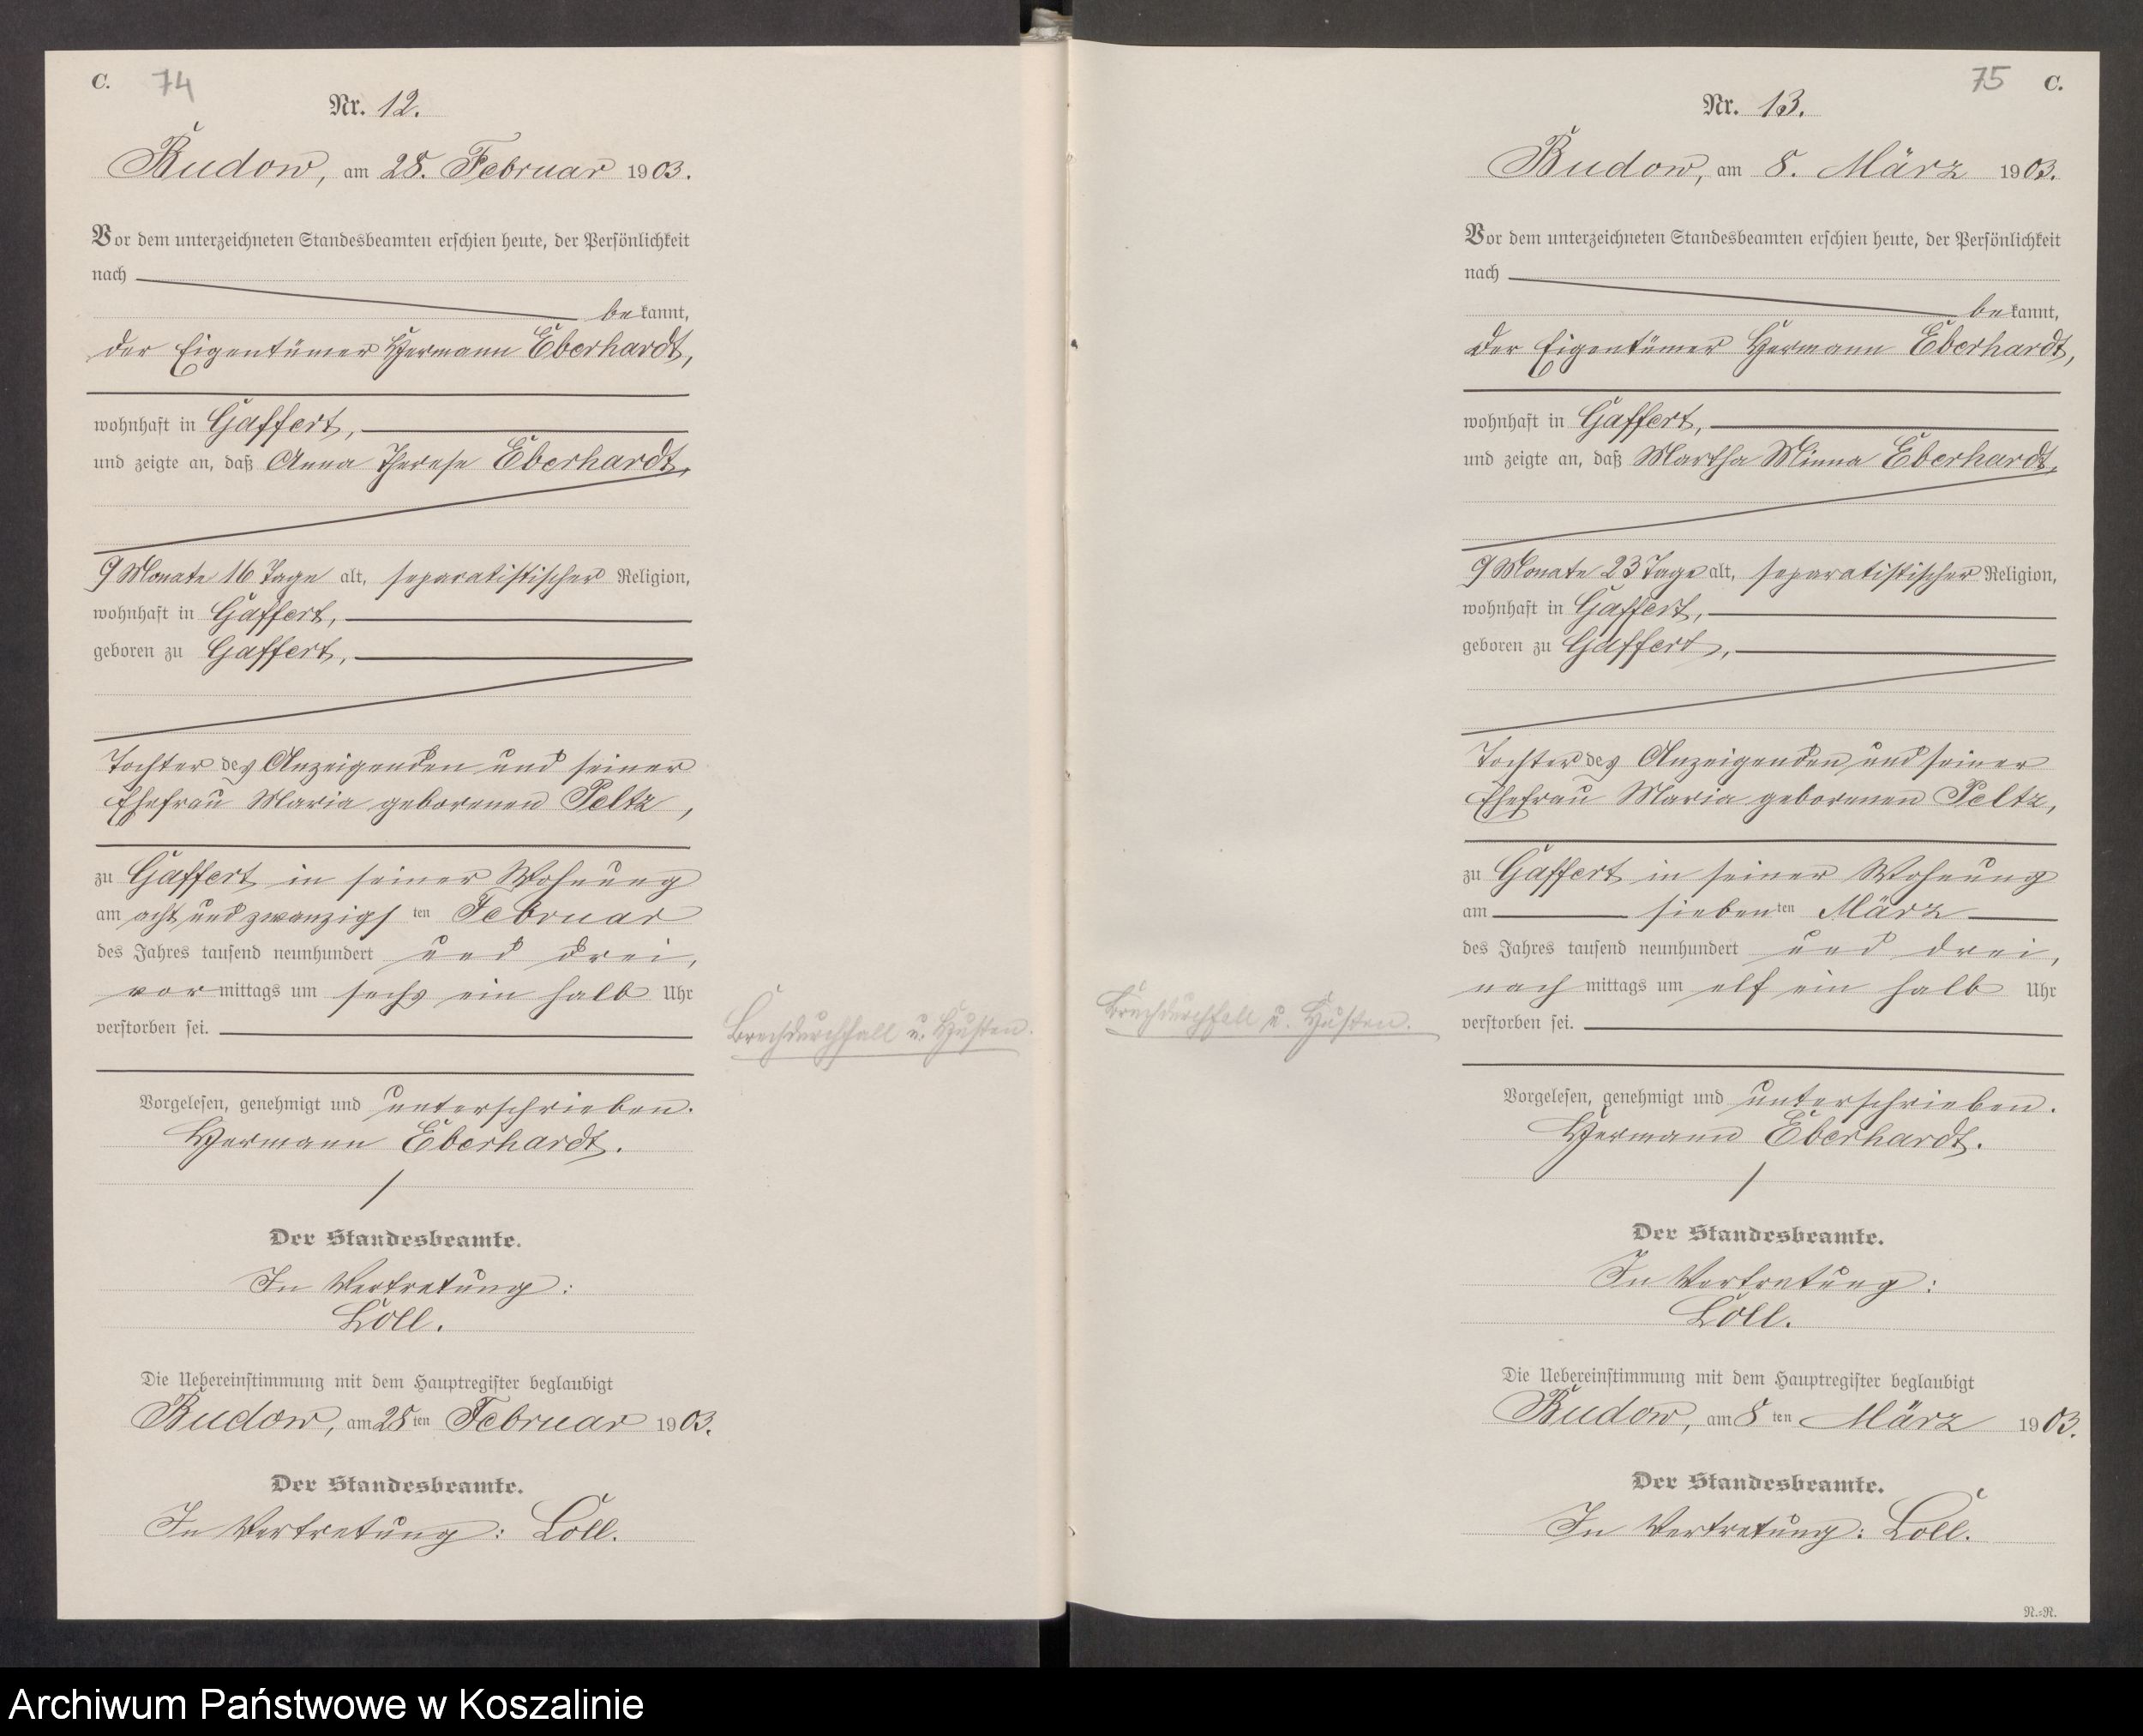 C. 74
Nr. 12.
Budow, am 28. Februar 1903.
Vor dem unterzeichneten Standesbeamten erschien heute, der Persönlichkeit
nach
bekannt,
der Eigentümer Hermann Eberhardt,
wohnhaft in Gaffert,
und zeigte an, daß Anna Therese Eberhardt,
9 Monate 16 Tage alt, separatistischer Religion,
wohnhaft in Gaffert,
geboren zu Gaffert,
Tochter des Anzeigenden und seiner
Ehefrau Maria geborenen Peltz,
zu Gaffert in seiner Wohnung
am acht und zwanzigsten Februar
des Jahres tausend neunhundert und drei,
vormittags um sechs ein halb Uhr
verstorben sei.
Brechdurchfall u. Husten.
Vorgelesen, genehmigt und unterschrieben.
Hermann Eberhardt.
Der Standesbeamte.
In Vertretung:
Loll.
Die Uebereinstimmung mit dem Hauptregister beglaubigt
Budow, am 28ten Februar 1903.
Der Standesbeamte.
In Vertretung: Loll.
75 C.
Nr. 13.
Budow, am 8. März 1903.
Vor dem unterzeichneten Standesbeamten erschien heute, der Persönlichkeit
nach
bekannt,
der Eigentümer Hermann Eberhardt,
wohnhaft in Gaffert,
und zeigte an, daß Martha Minna Eberhardt,
9 Monate 23 Tage alt, separatistischer Religion,
wohnhaft in Gaffert,
geboren zu Gaffert,
Tochter des Anzeigenden und seiner
Ehefrau Maria geborenen Peltz,
zu Gaffert in seiner Wohnung
am siebenten März
des Jahres tausend neunhundert und drei,
nachmittags um elf ein halb Uhr
verstorben sei.
Brechdurchfall u. Husten.
Vorgelesen, genehmigt und unterschrieben.
Hermann Eberhardt.
Der Standesbeamte.
In Vertretung:
Loll.
Die Uebereinstimmung mit dem Hauptregister beglaubigt
Budow, am 8ten März 1903.
Der Standesbeamte.
In Vertretung: Loll.
N.=N.
Archiwum Państwowe w Koszalinie